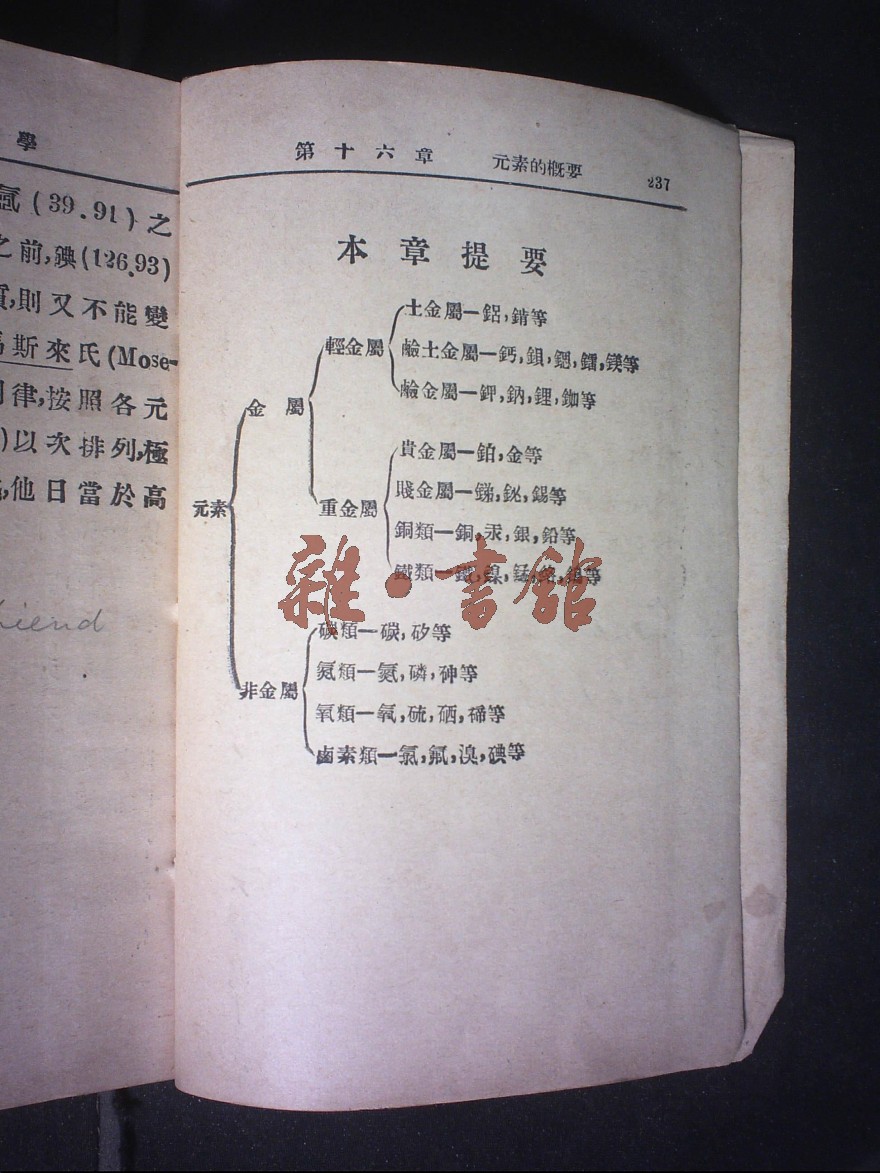 學
氬(39.91)之
之前,碘(126.93)
質,則又不能變
斯來氏(Mose-
律,按照各元
)以次排列,極
他日當於高
第十六章 元素的概要 237
本章提要
元素
金屬
輕金屬
土金屬—鋁,錯等
鹼土金屬—鈣,鋇,鍶,鐳,鎂等
鹼金屬—鉀,鈉,鋰,銣等
重金屬
貴金屬—鉑,金等
賤金屬—銻,鉍,錫等
銅類—銅,汞,銀,鉛等
鐵類—鐵,鎳,錳,鉻,等
非金屬
碳類—碳,矽等
氮類—氮,磷,砷等
氧類—氧,硫,硒,碲等
鹵素類—氯,氟,溴,碘等
雜·書館